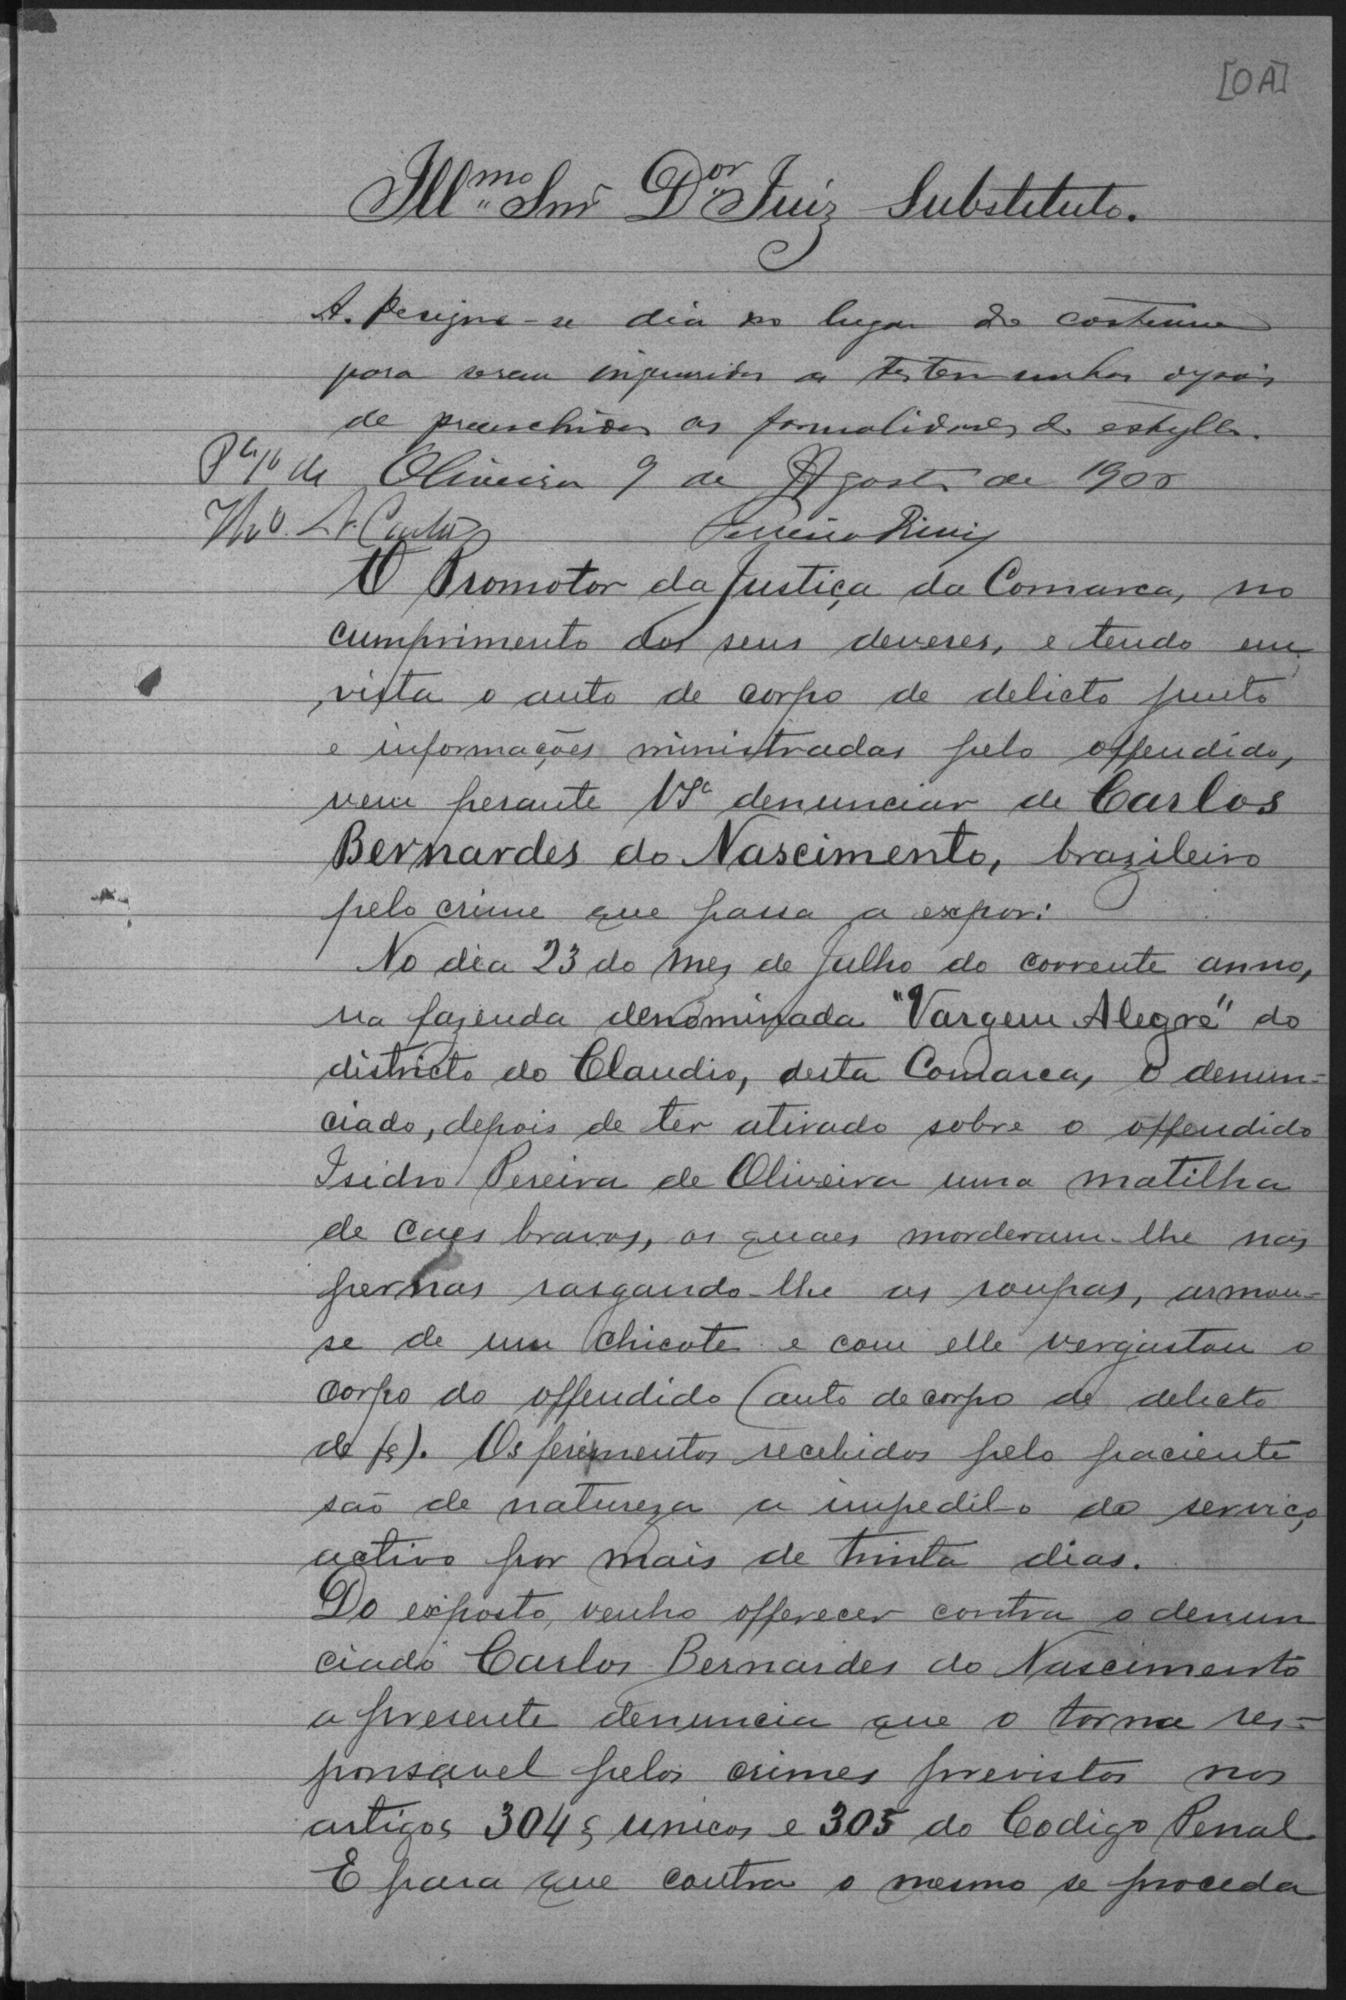 [OA]
Ill.mo Snr Dor Juiz Substituto.
A. Designe-se dia no lugar do costume
para serem inqueridas as testemunhas depois
de preenchidas as formalidades do estylo.
de Oliveira 9 de Agosto de 1900
O Promotor da Justiça da Comarca, no
cumprimento dos seus deveres, e tendo em
vista o auto de corpo de delicto junto
e informações ministradas pelo offendido,
vem perante VSa denunciar de Carlos
Bernardes do Nascimento, brazileiro
pelo crime que passa a expor:
No dia 23 do mez de Julho do corrente anno,
na fazenda denominada "Vargem Alegre" do
districto do Claudio, desta Comarca, o denun=
ciado, depois de ter atirado sobre o offendido
Isidro Pereira de Oliveira uma matilha
de caes bravos, os quaes morderam-lhe nas
pernas rasgando-lhe as roupas, armou=
se de um chicote e com elle vergastou o
corpo do offendido (auto de corpo de delicto
de fs). Os ferimentos recebidos pelo paciente
são de natureza a impedil-o do serviço
activo por mais de trinta dias.
Do exposto, venho offerecer contra o denun
ciado Carlos Bernardes do Nascimento
a presente denuncia que o torna res=
ponsavel pelos crimes previstos nos
artigos 304 § unicos e 305 do Codigo Penal.
E para que contra o mesmo se proceda